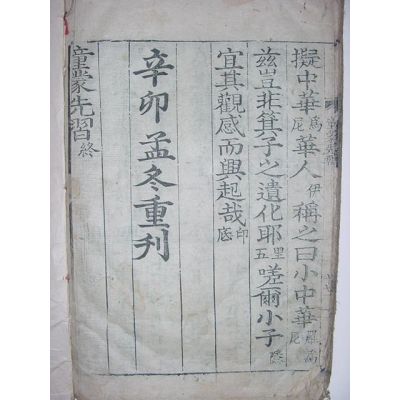 擬中華爲尼華人伊稱之曰小中華羅爲尼
茲豈非箕子之遺化耶里五嗟爾小子隱
宜其觀感而興起哉印底
辛卯孟冬重刊
童蒙先習終